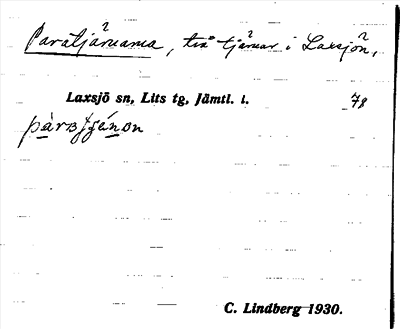 Paratjärnarna, två tjärnar i Laxsjön,
Laxsjö sn, Lits tg, Jämtl. l. 78
C. Lindberg 1930.